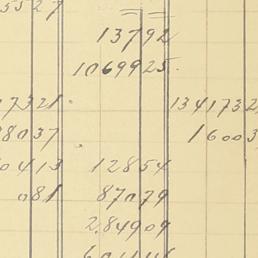 5527
13792
1069925.
17321 1341732
8037 16003
0413 12854
081 87079
2.84909